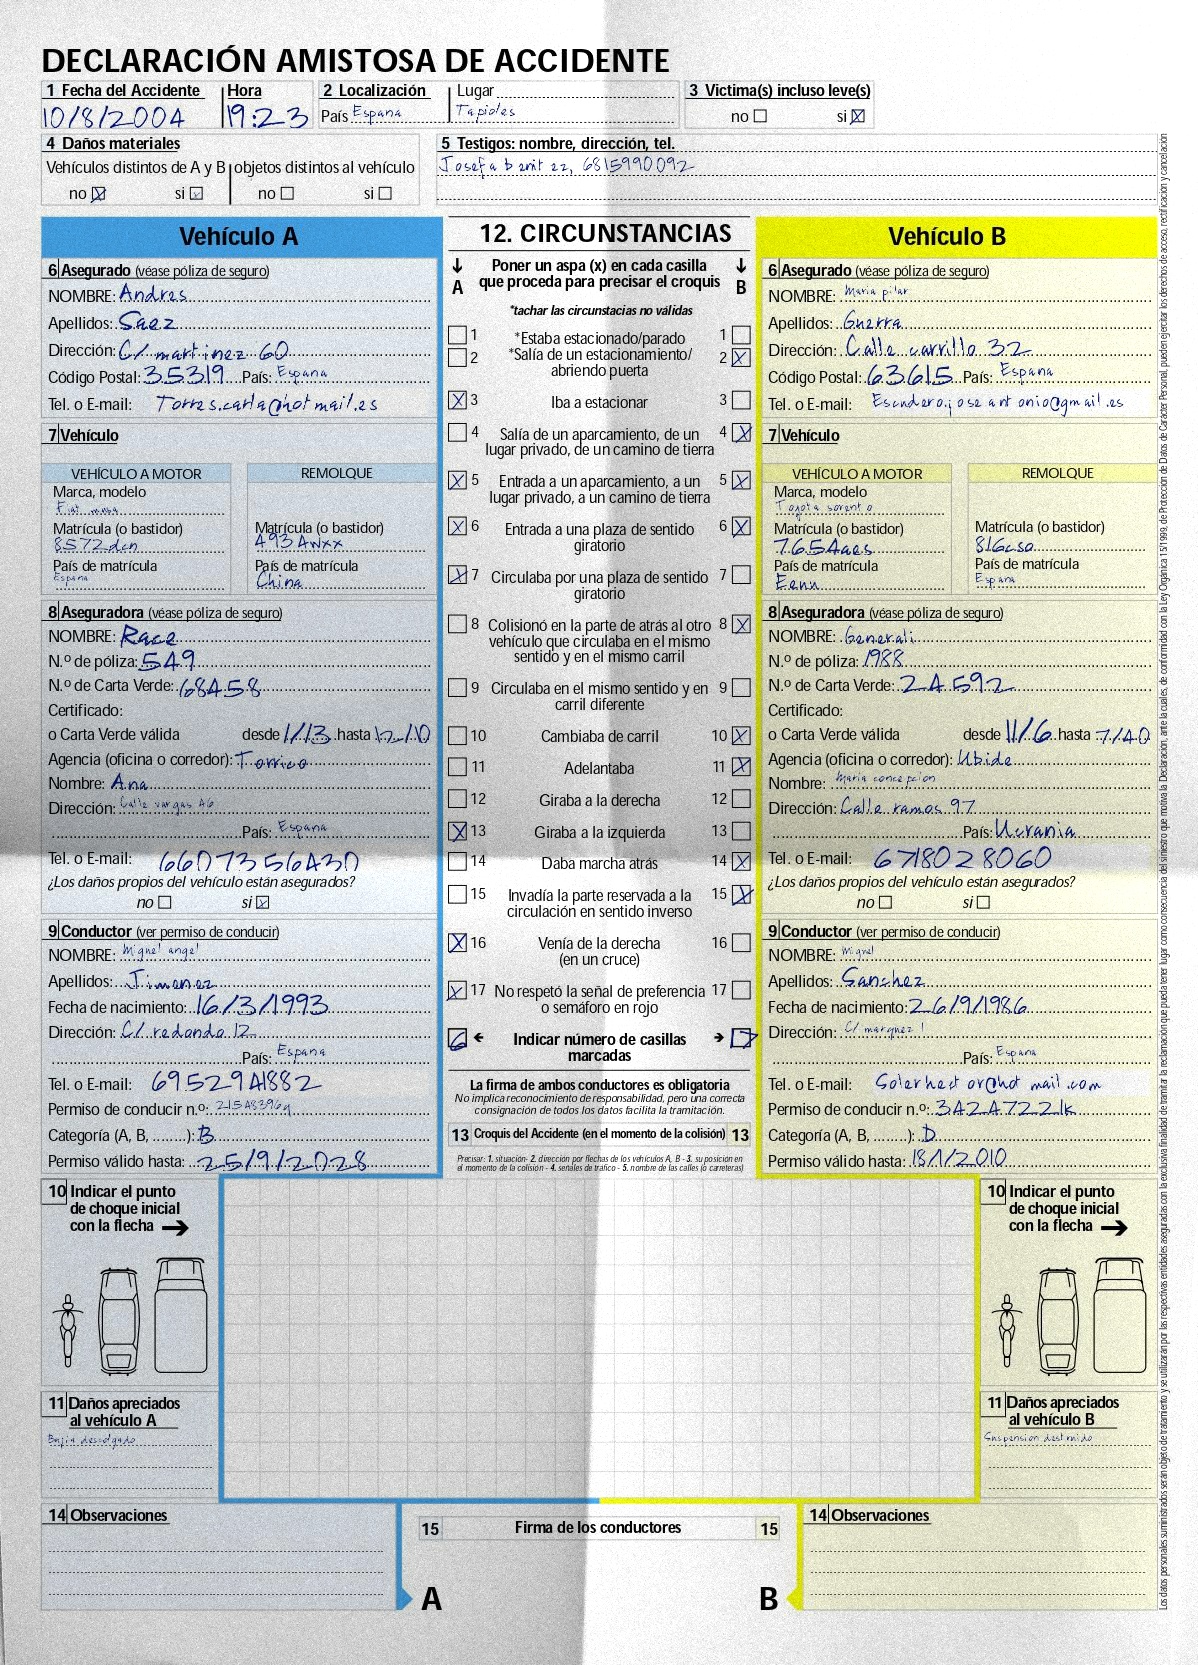 DECLARACIÓN AMISTOSA DE ACCIDENTE
1 Fecha del Accidente Hora 2 Localización Lugar 3 Victima(s) incluso leve(s)
10/8/2004 19:23 País Espana Tapioles no ☐ si ☒
4 Daños materiales 5 Testigos: nombre, dirección, tel.
Vehículos distintos de A y B objetos distintos al vehículo Josefa benitez, 6815990092
no ☒ si ☒ no ☐ si ☐
Vehículo A
6 Asegurado (véase póliza de seguro)
NOMBRE: Andres
Apellidos: Saez
Dirección: C/ martinez 60
Código Postal: 35319 País: Espana
Tel. o E-mail: Torres.carla@hotmail.es
7 Vehículo
VEHÍCULO A MOTOR REMOLQUE
Marca, modelo
Fiat
Matrícula (o bastidor) Matrícula (o bastidor)
8572dcn 493Awxx
País de matrícula País de matrícula
Espana China
8 Aseguradora (véase póliza de seguro)
NOMBRE: Race
N.º de póliza: 549
N.º de Carta Verde: 68458
Certificado:
o Carta Verde válida desde 1/13 hasta 12/10
Agencia (oficina o corredor): Torrico
Nombre: Ana
Dirección: Calle vargas 46
País: Espana
Tel. o E-mail: 6607356430
¿Los daños propios del vehículo están asegurados?
no ☐ si ☒
9 Conductor (ver permiso de conducir)
NOMBRE: Miguel angel
Apellidos: Jimenez
Fecha de nacimiento: 16/3/1993
Dirección: C/ redondo 12
País: Espana
Tel. o E-mail: 6952941882
Permiso de conducir n.º: 21548396y
Categoría (A, B, ........): B
Permiso válido hasta: 25/9/2028
10 Indicar el punto
de choque inicial
con la flecha →
11 Daños apreciados
al vehículo A
Bujia descolgado
14 Observaciones
12. CIRCUNSTANCIAS
↓ Poner un aspa (x) en cada casilla ↓
A que proceda para precisar el croquis B
*tachar las circunstacias no válidas
☐ 1 *Estaba estacionado/parado 1 ☐
☐ 2 *Salía de un estacionamiento/ 2 ☒
abriendo puerta
☒ 3 Iba a estacionar 3 ☐
☐ 4 Salía de un aparcamiento, de un 4 ☒
lugar privado, de un camino de tierra
☒ 5 Entrada a un aparcamiento, a un 5 ☒
lugar privado, a un camino de tierra
☒ 6 Entrada a una plaza de sentido 6 ☒
giratorio
☒ 7 Circulaba por una plaza de sentido 7 ☐
giratorio
☐ 8 Colisionó en la parte de atrás al otro 8 ☒
vehículo que circulaba en el mismo
sentido y en el mismo carril
☐ 9 Circulaba en el mismo sentido y en 9 ☐
carril diferente
☐ 10 Cambiaba de carril 10 ☒
☐ 11 Adelantaba 11 ☒
☐ 12 Giraba a la derecha 12 ☐
☒ 13 Giraba a la izquierda 13 ☐
☐ 14 Daba marcha atrás 14 ☒
☐ 15 Invadía la parte reservada a la 15 ☒
circulación en sentido inverso
☒ 16 Venía de la derecha 16 ☐
(en un cruce)
☒ 17 No respetó la señal de preferencia 17 ☐
o semáforo en rojo
6 ← Indicar número de casillas → 7
marcadas
La firma de ambos conductores es obligatoria
No implica reconocimiento de responsabilidad, pero una correcta
consignación de todos los datos facilita la tramitación.
13 Croquis del Accidente (en el momento de la colisión) 13
Precisar: 1. situación- 2. dirección por flechas de los vehículos A, B - 3. su posición en
el momento de la colisión - 4. señales de tráfico - 5. nombre de las calles (o carreteras)
15 Firma de los conductores 15
A B
Vehículo B
6 Asegurado (véase póliza de seguro)
NOMBRE: Maria pilar
Apellidos: Guerra
Dirección: Calle carrillo 32
Código Postal: 63615 País: Espana
Tel. o E-mail: Escudero.jose antonio@gmail.es
7 Vehículo
VEHÍCULO A MOTOR REMOLQUE
Marca, modelo
Toyota sorento
Matrícula (o bastidor) Matrícula (o bastidor)
7654aes 816cso
País de matrícula País de matrícula
Eenn Espana
8 Aseguradora (véase póliza de seguro)
NOMBRE: Generali
N.º de póliza: 1988
N.º de Carta Verde: 24592
Certificado:
o Carta Verde válida desde 11/6 hasta 7/40
Agencia (oficina o corredor): Ubide
Nombre: Maria concepcion
Dirección: Calle ramos 97
País: Ucrania
Tel. o E-mail: 6718028060
¿Los daños propios del vehículo están asegurados?
no ☐ si ☐
9 Conductor (ver permiso de conducir)
NOMBRE: Miguel
Apellidos: Sanchez
Fecha de nacimiento: 26/9/1986
Dirección: C/ marquez 1
País: Espana
Tel. o E-mail: Solerhector@hotmail.com
Permiso de conducir n.º: 34247221k
Categoría (A, B, ........): D
Permiso válido hasta: 18/1/2010
10 Indicar el punto
de choque inicial
con la flecha →
11 Daños apreciados
al vehículo B
Suspension destruido
14 Observaciones
Los datos personales suministrados serán objeto de tratamiento y se utilizarán por las respectivas entidades aseguradas con la exclusiva finalidad de tramitar la reclamación que pueda tener lugar como consecuencia del siniestro que motiva la Declaración, ante la cuales, de conformidad con la Ley Orgánica 15/1999, de Protección de Datos de Carácter Personal, pueden ejercitar los derechos de acceso, rectificación y cancelación